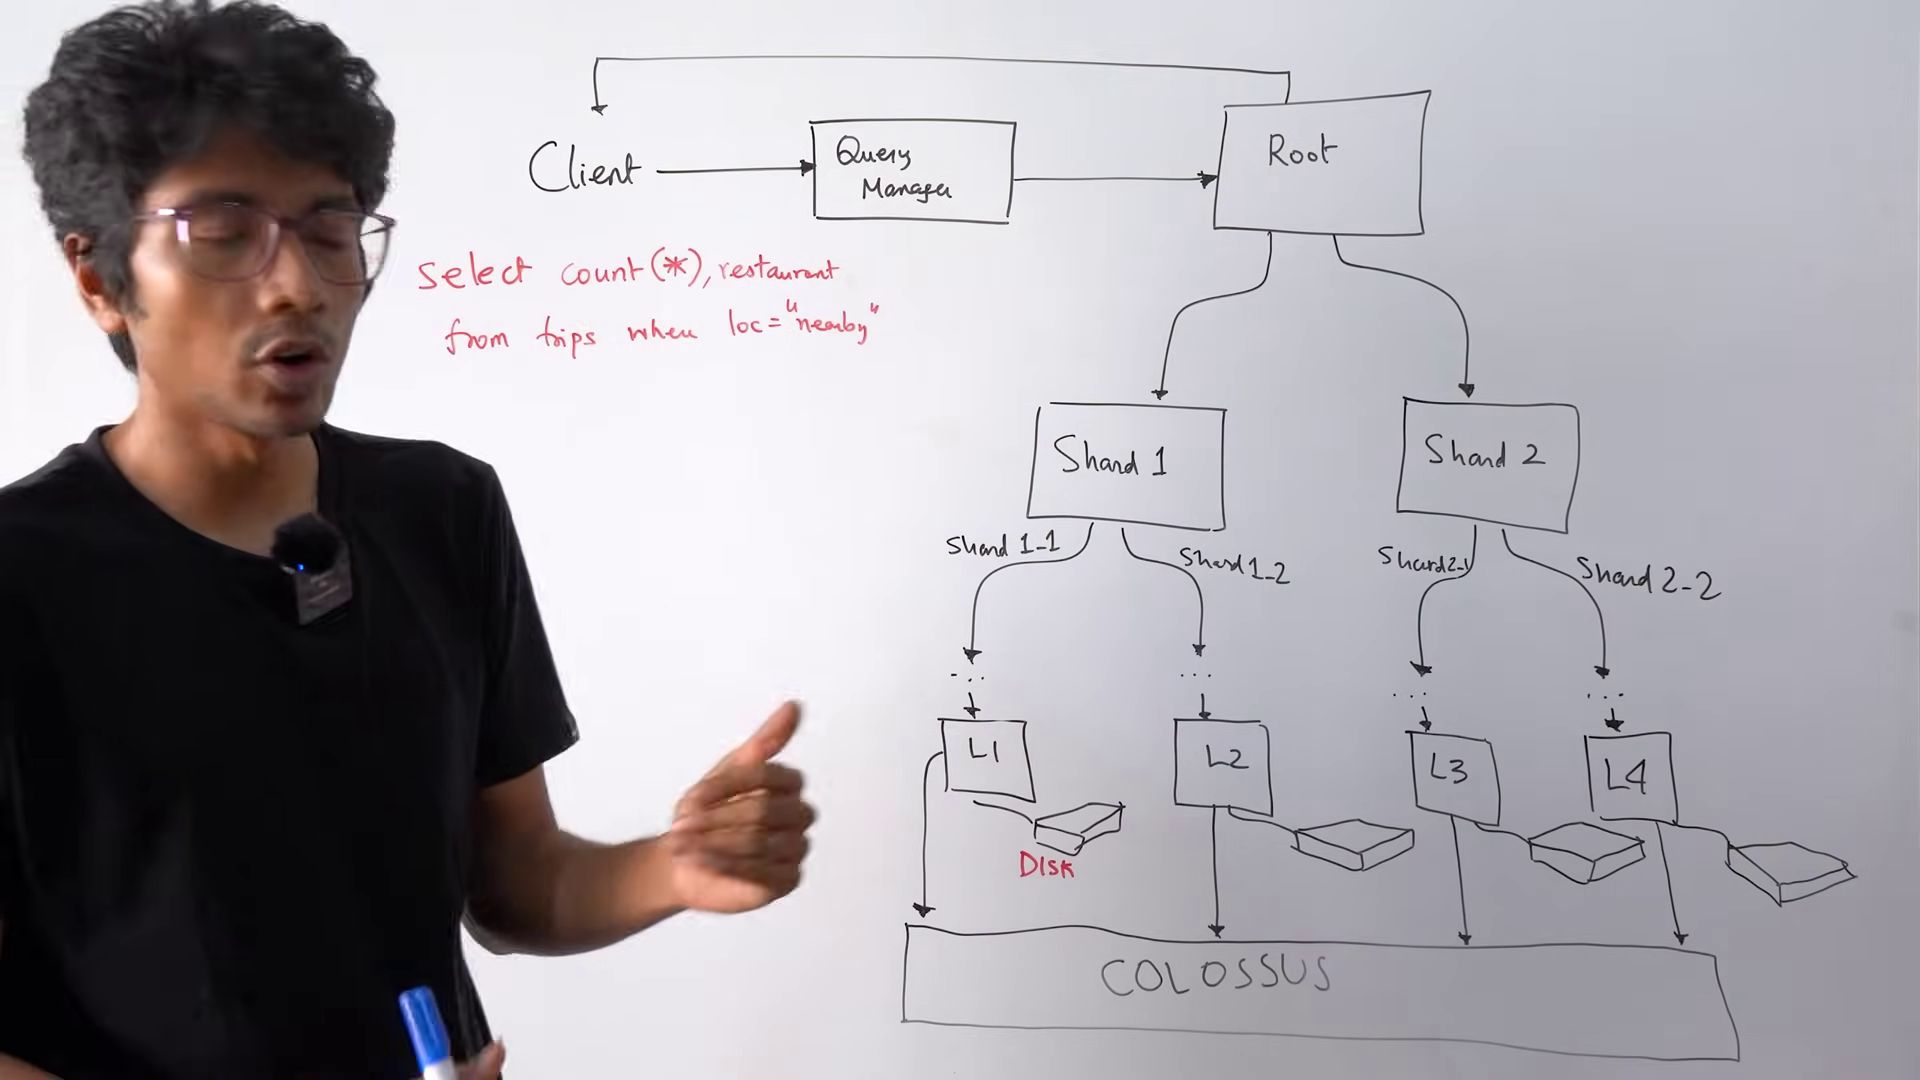 Client
Query
Manager
Root
Select count(*), restaurant
from trips when loc="nearby"
Shard 1
Shard 2
Shard 1-1
Shard 1-2
Shard2-1
Shard 2-2
...
...
...
...
L1
L2
L3
L4
DISK
COLOSSUS